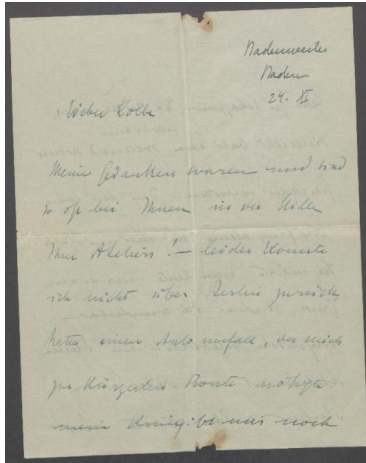 Badenweiler
Baden
29. XI
Lieber Kolbe
Meine Gedanken waren und sind
so oft bei Ihnen in der Stille
Ihres Ateliers! – leider konnte
ich nicht über Berlin zurück
hatte einen Autounfall, der mich
zur kürzesten Route nötigte
mein Knie gibt mir noch